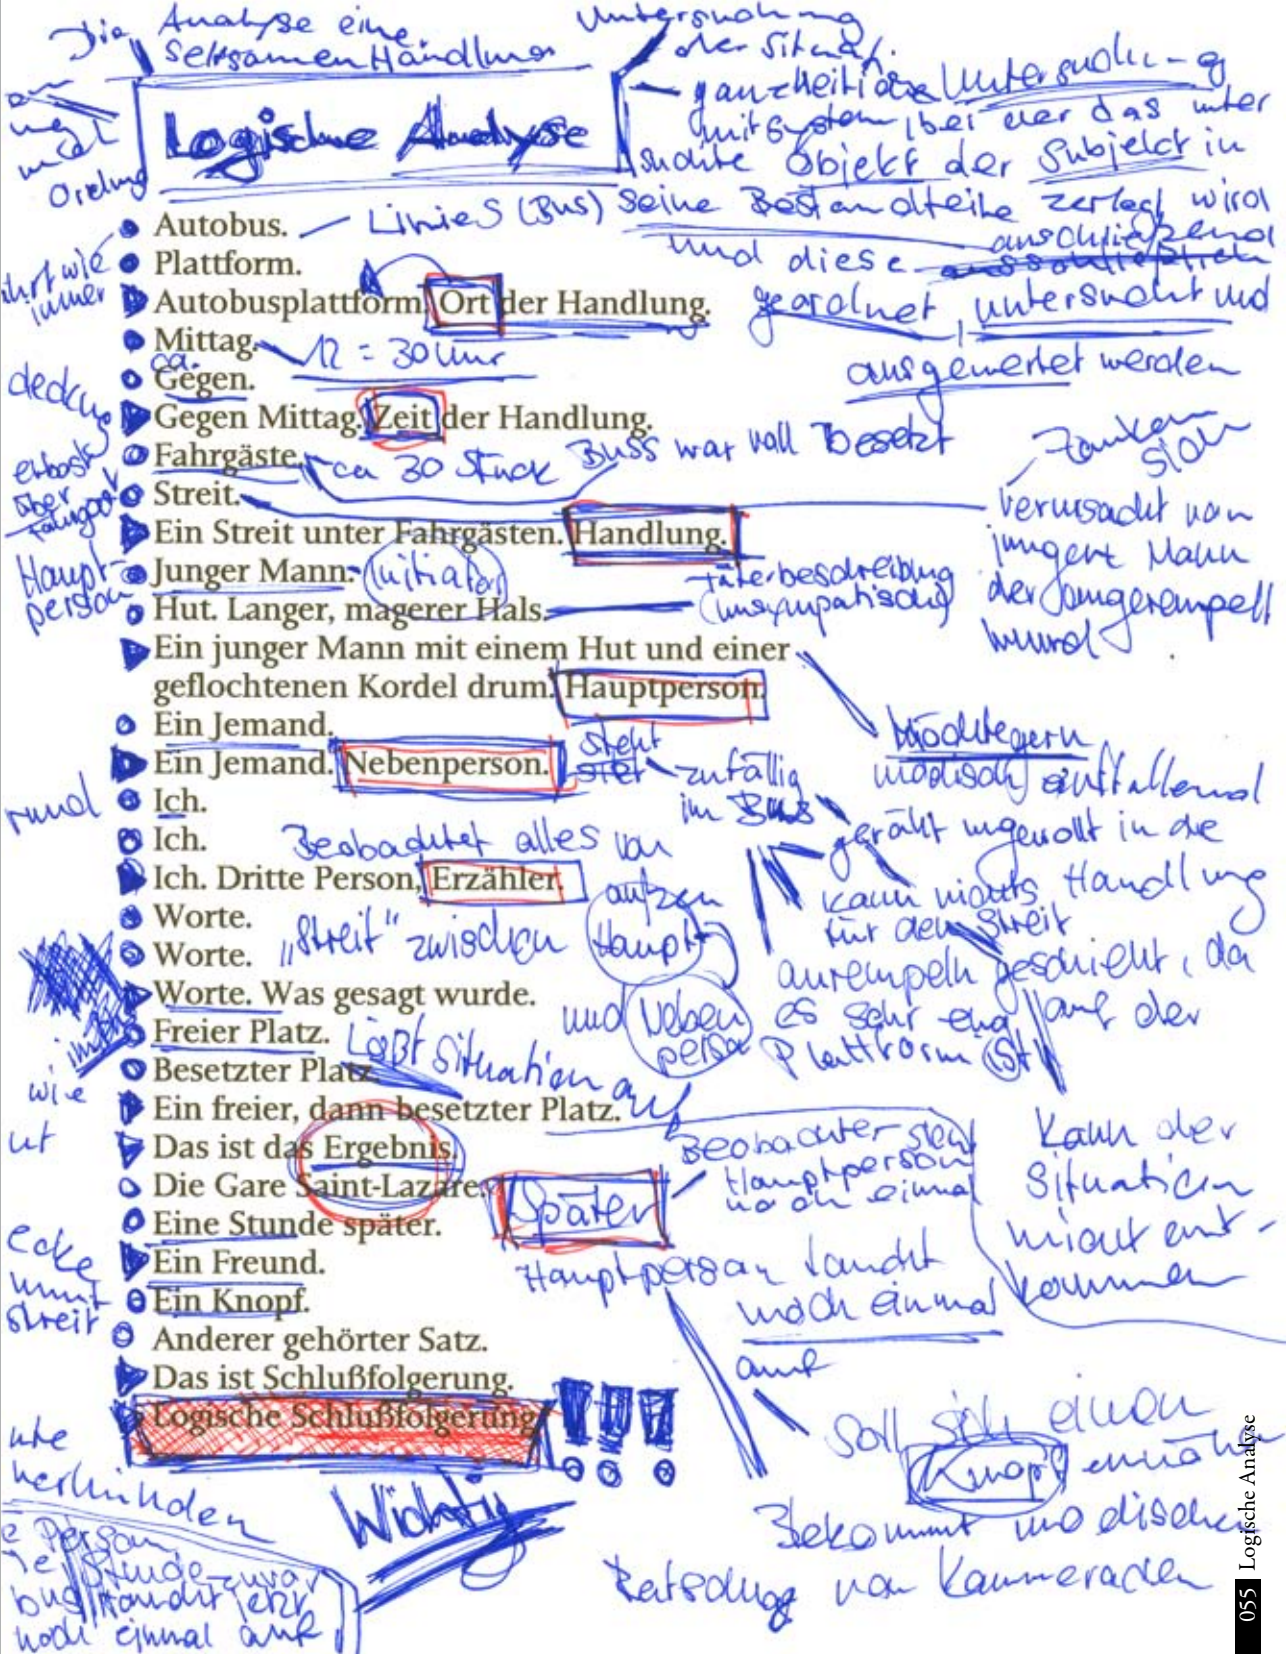 Die Analyse eine
seltsamen Handlung
Untersuchung
der Situat.
ganzheitliche Untersuchung
mit System, bei der das unter
suchte Objekt der Subjekt in
seine Bestandteile zerlegt wird
und diese anschließend
geordnet, untersucht und
ausgewertet werden
Logische Analyse
Ordnung
Autobus.
Linie S (Bus)
Plattform.
immer
Autobusplattform. Ort der Handlung.
Mittag.
12 = 30 Uhr
ca.
Gegen.
Gegen Mittag. Zeit der Handlung.
Fahrgäste.
ca 30 Stück
Buss war voll Besetzt
erbost
über
Fahrgast
Streit.
Zanken
sich
verursacht von
jungen Mann
der angerempelt
wurd
Ein Streit unter Fahrgästen. Handlung.
Haupt-
person
Junger Mann.
Initiator
Täterbeschreibung
(unsympatisch)
Hut. Langer, magerer Hals.
Ein junger Mann mit einem Hut und einer
geflochtenen Kordel drum. Hauptperson.
Möchtegern
modisch auffallend
Ein Jemand.
Ein Jemand. Nebenperson.
steht
zufällig
im Bus
gerät ungewollt in die
Handlung
kann nichts
für den Streit
anrempeln geschieht, da
es sehr eng auf der
Plattform ist
rund
Ich.
Ich.
Beobachtet alles von
außen
Ich. Dritte Person, Erzähler.
Worte.
"Streit" zwischen Haupt-
und Neben
person
Worte.
Worte. Was gesagt wurde.
Freier Platz.
Läßt Situation auf
Besetzter Platz.
wie
Ein freier, dann besetzter Platz.
Das ist das Ergebnis.
Beobachter sieht
Hauptperson
noch einmal
Kann der
Situation
nicht ent-
kommen
Die Gare Saint-Lazare.
Später
Eine Stunde später.
Ein Freund.
Hauptperson taucht
noch einmal
auf
ecke
streit
Ein Knopf.
Anderer gehörter Satz.
Das ist Schlußfolgerung.
Logische Schlußfolgerung.
!!!
Wichtig
soll sich einen
Knopf annähen
Bekommt modischen
Ratschlag von Kammeraden
verhindern
e Person
Stunde zuvor
bus, taucht jetzt
noch einmal auf
055 Logische Analyse